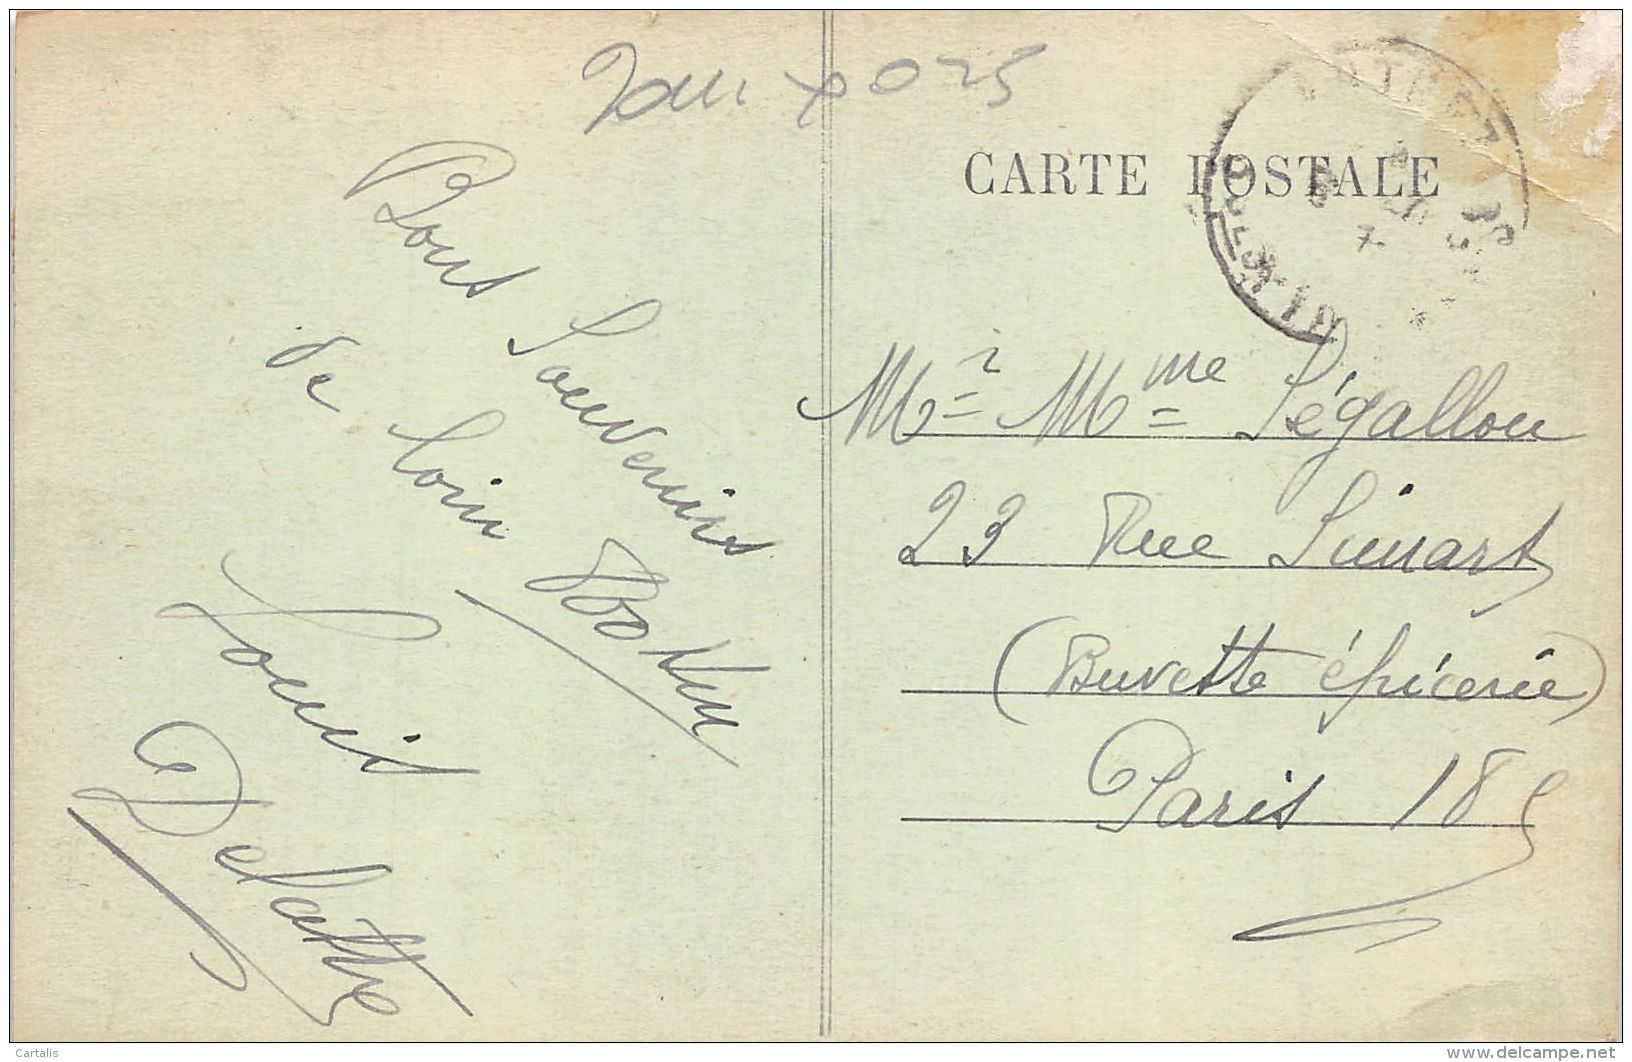 CARTE POSTALE
Bons Souvenirs
de loin 800 Km
Louis
Delattre
Mr Mme Ségallou
23 Rue Simart
(Buvette épicerie)
Paris 18e
Cartalis
www.delcampe.net